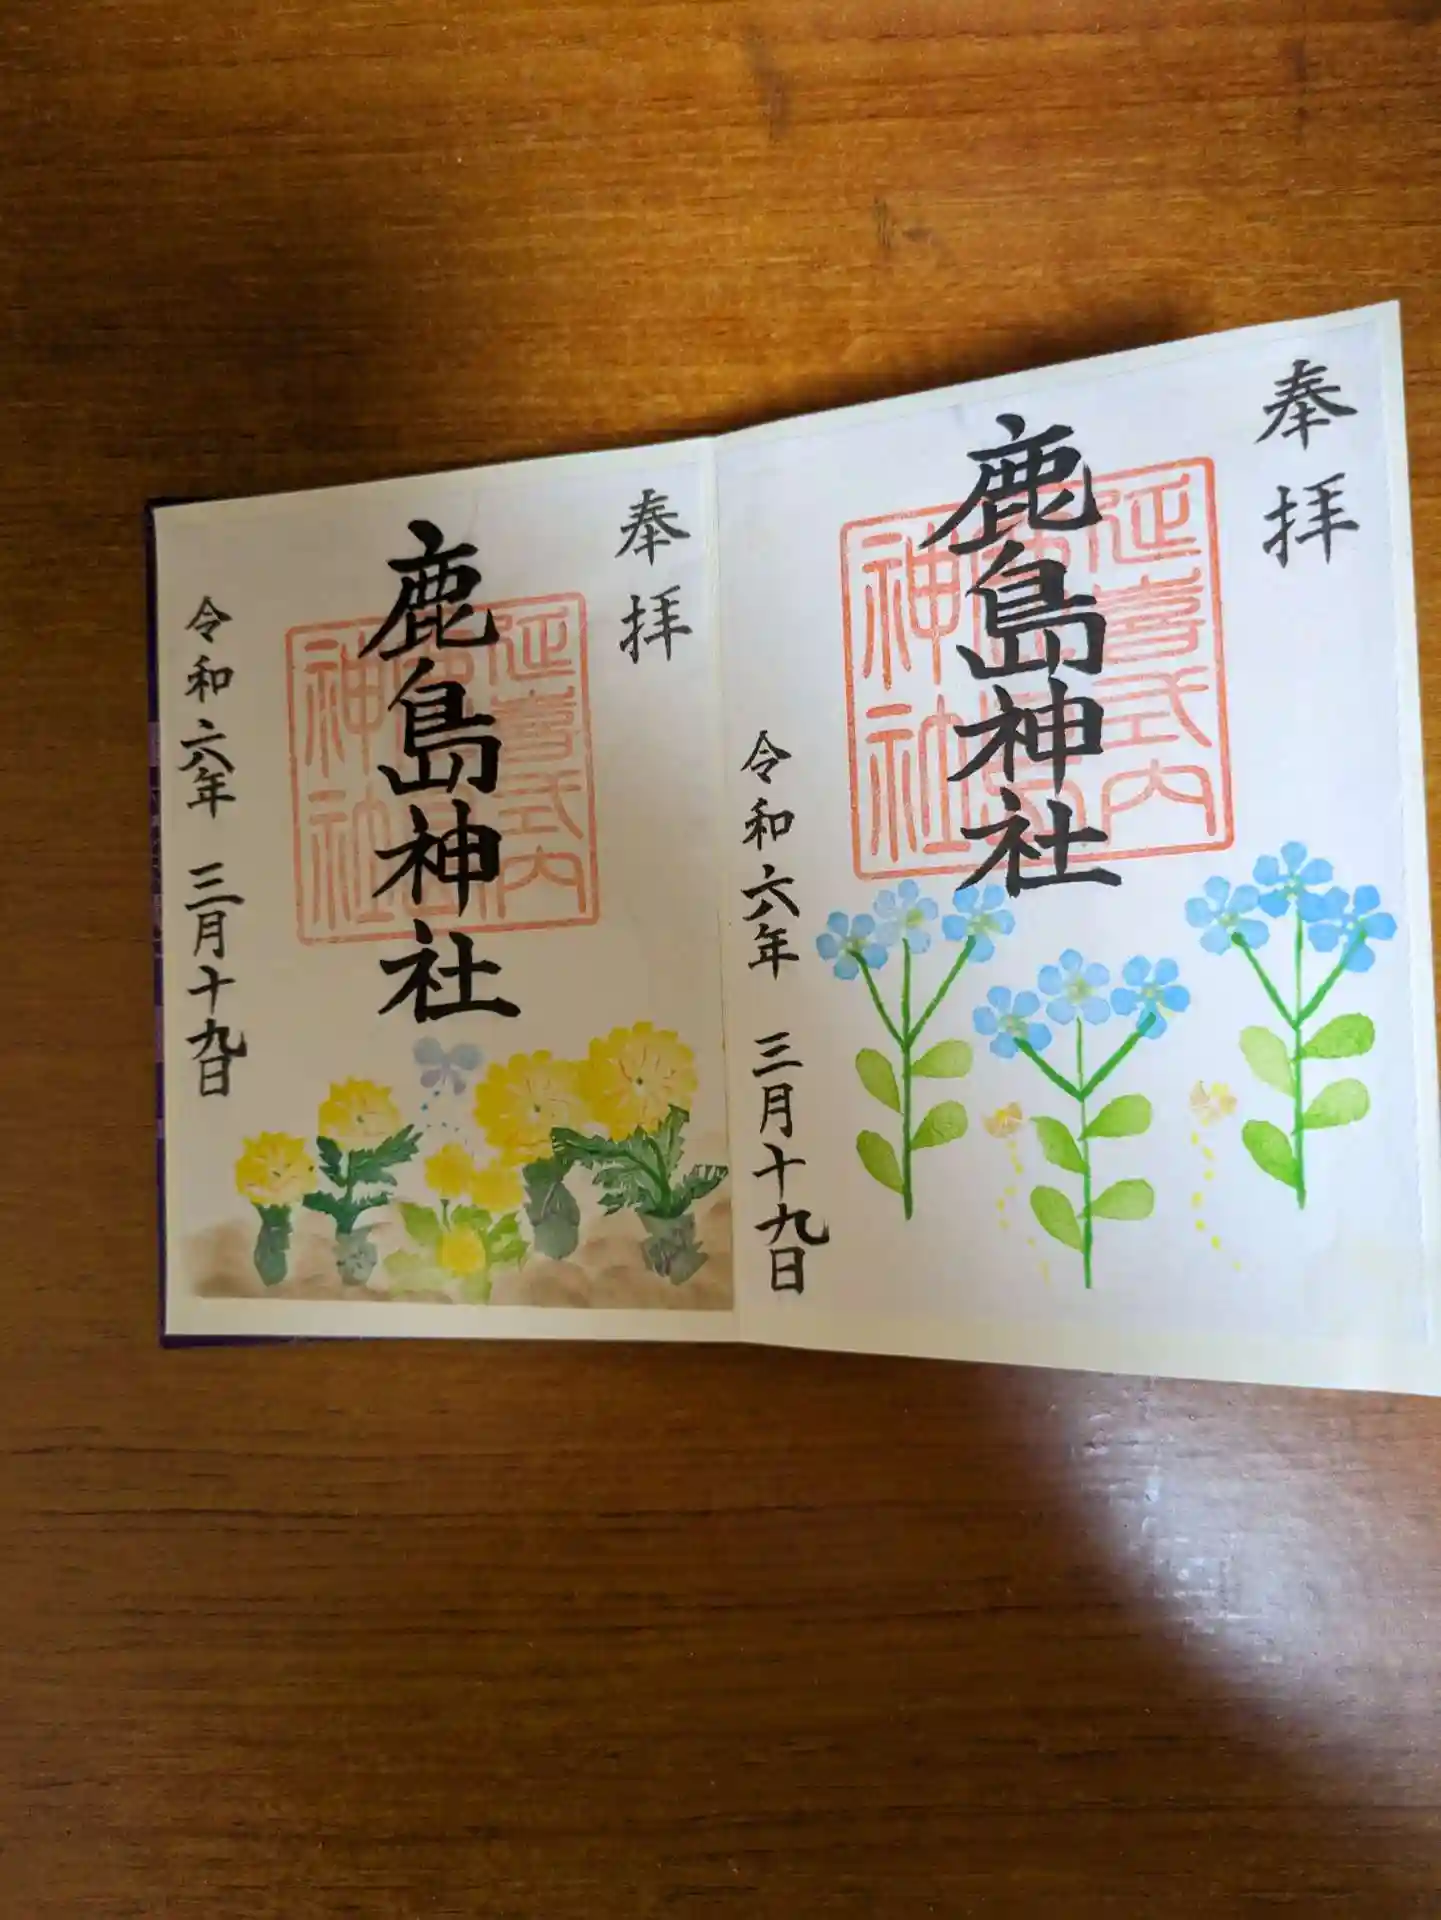 奉拝
鹿島神社
延喜式内
鹿島
神社
令和六年 三月十九日
奉拝
鹿島神社
延喜式内
神社
令和六年 三月十九日